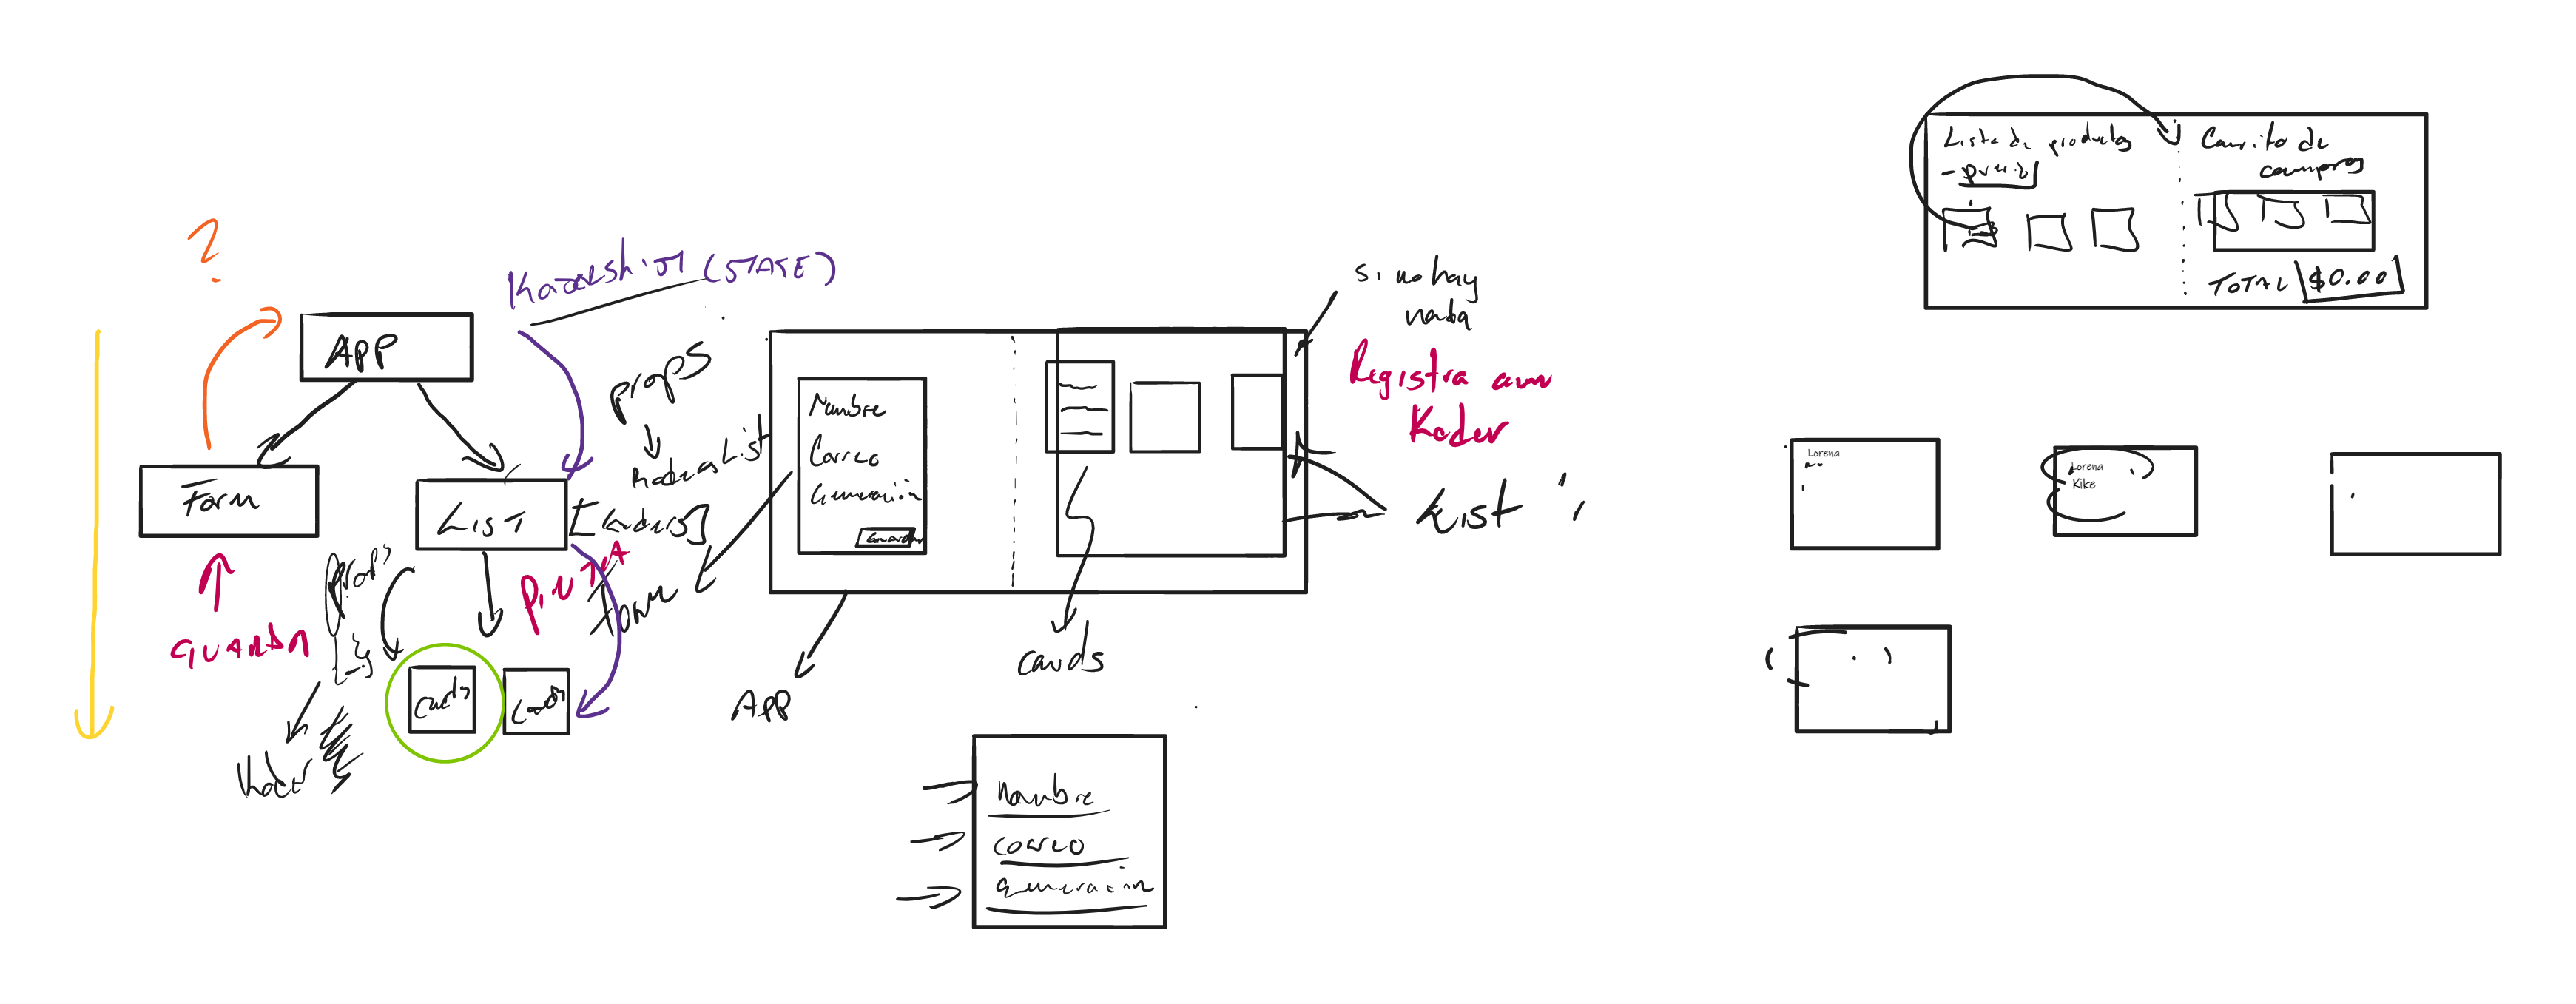 ?
APP
Form
GUARDA
LIST
(STATE)
props
Koders List
[koders]
PINTA
props
{}
Koder
Cards
Cards
Form
Nombre
Correo
Generación
Guardar
APP
cards
si no hay
nada
Registra a un
Koder
List
Nombre
Correo
Generación
Lista de productos
- precio
Carrito de
compras
TOTAL $0.00
Lorena
Lorena
Kike